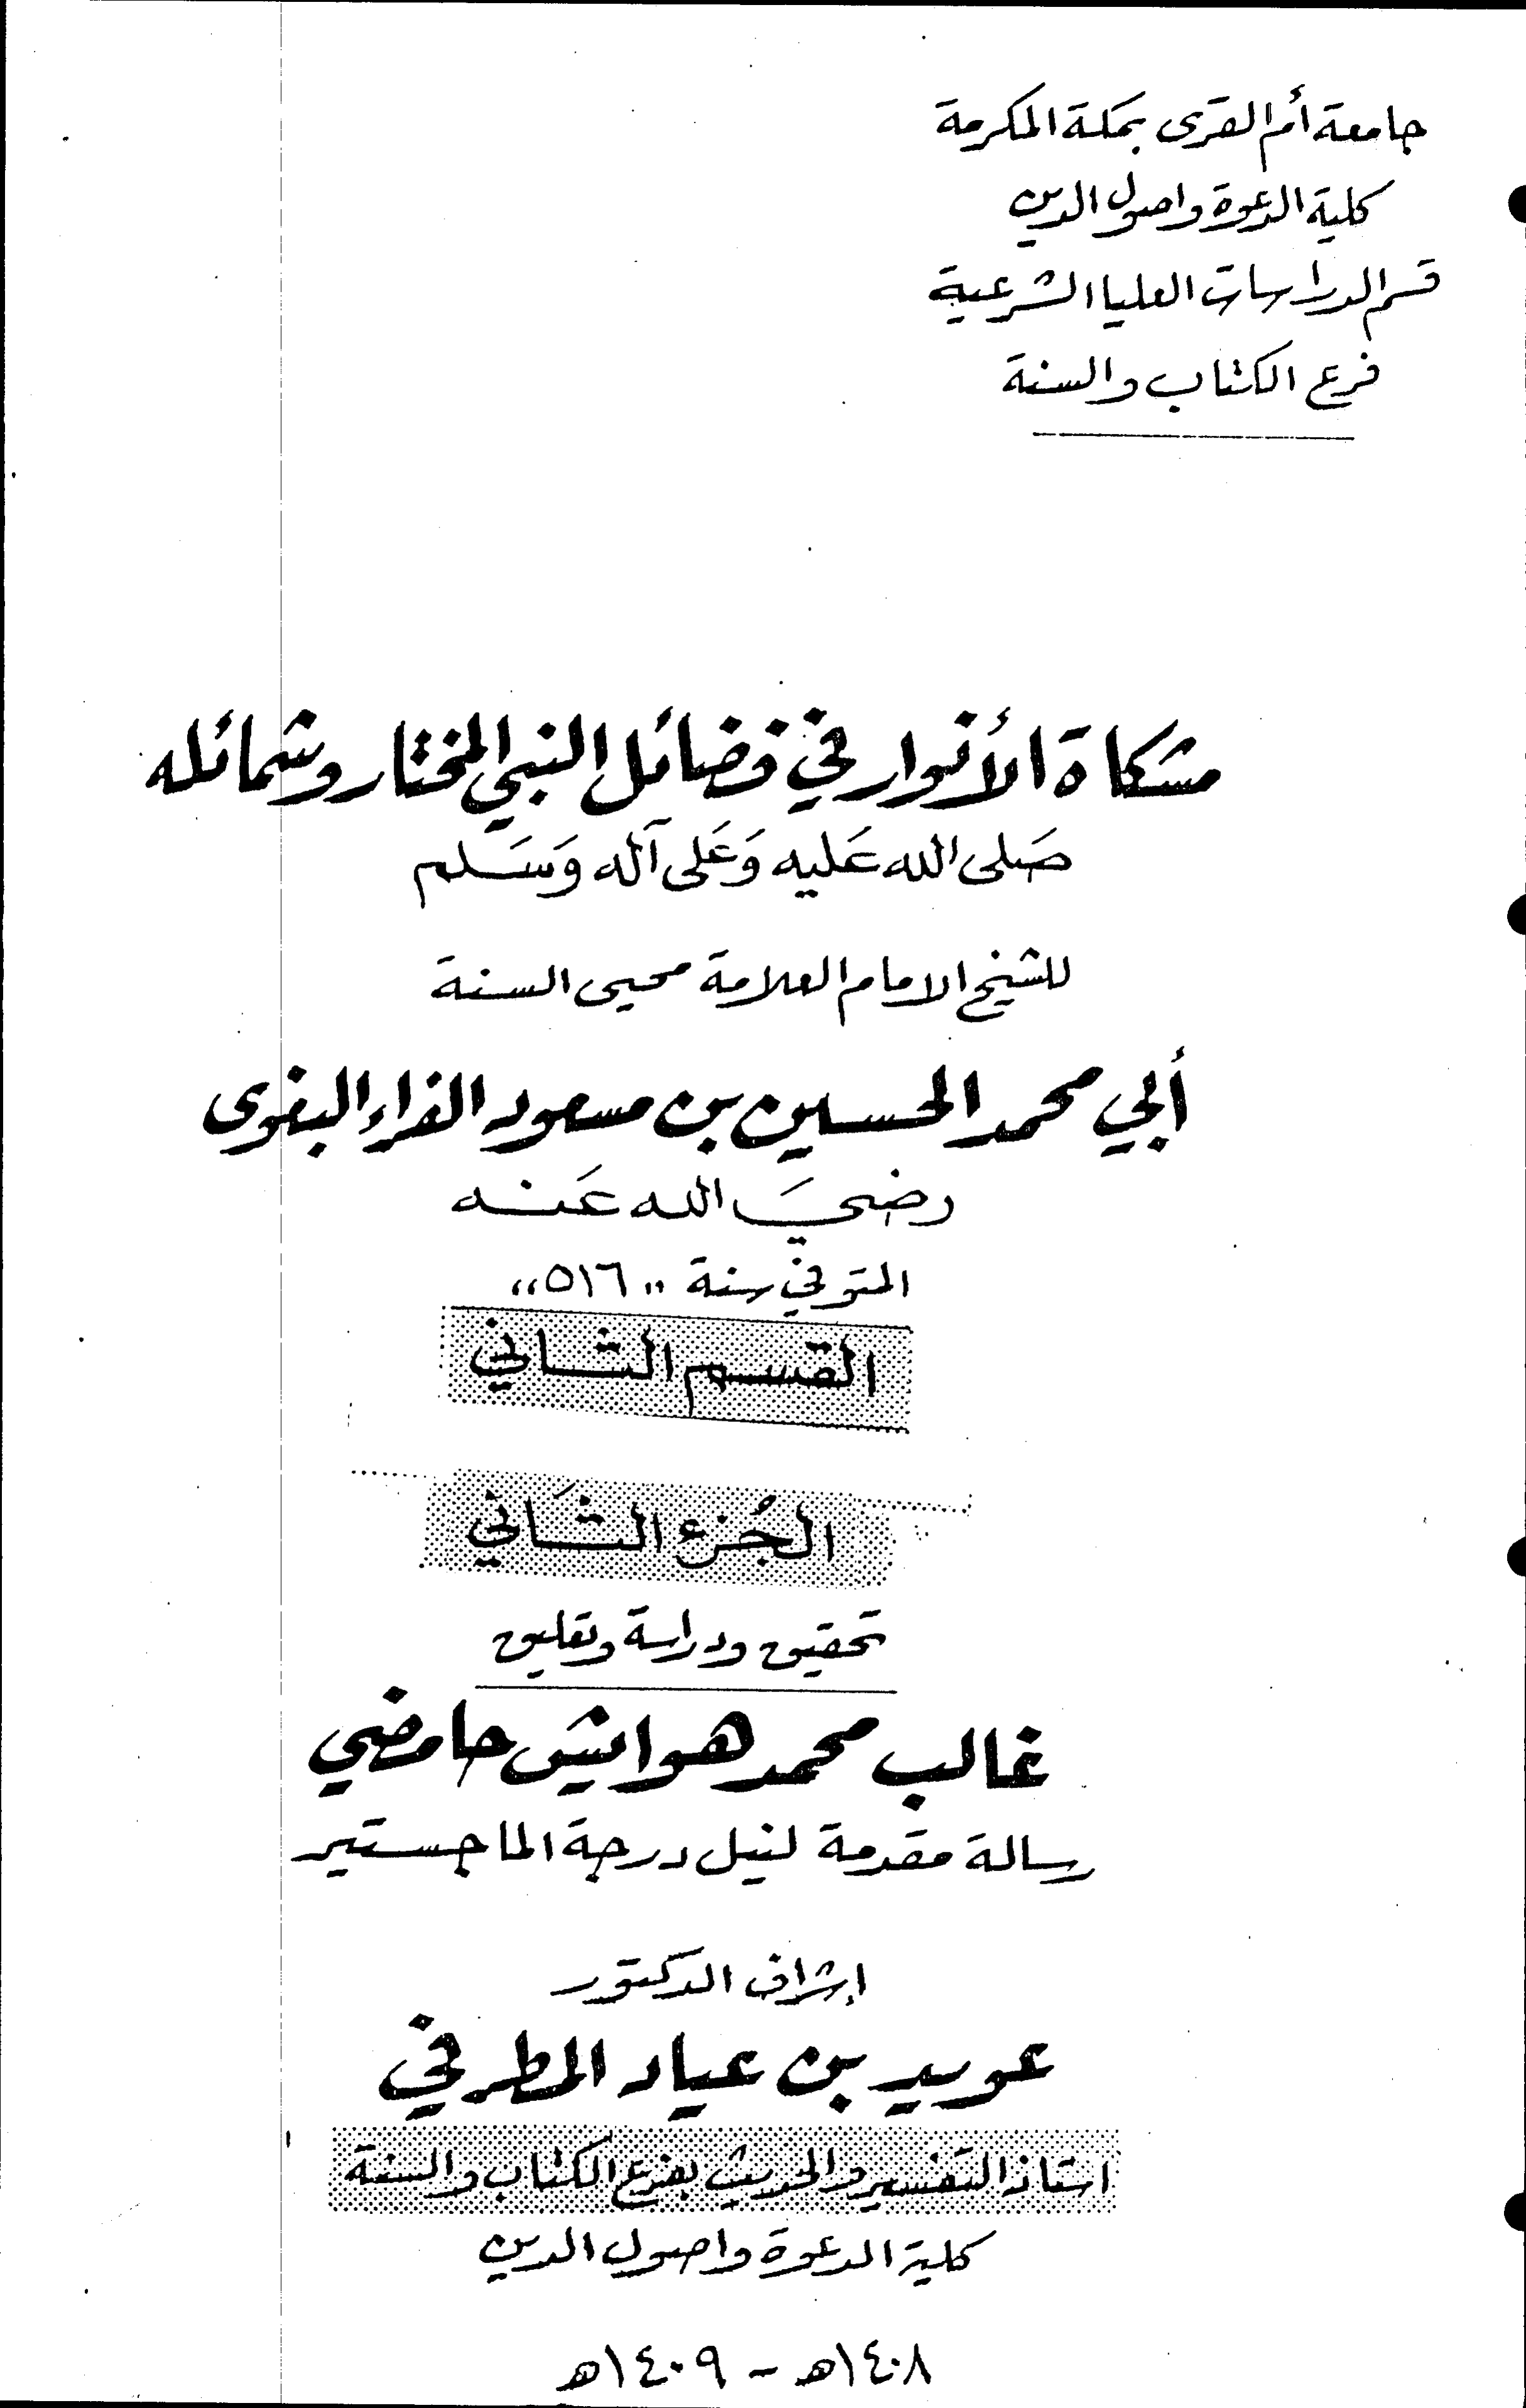 جامعة أم القرى بمكة المكرمة
كلية الدعوة واصول الدين
قسم الدراسات العليا الشرعية
فرع الكتاب والسنة
مشكاة الأنوار في فضائل النبي المختار وشمائله
صَلى الله عَليه وَعَلى آله وَسَلم
للشيخ الامام العلامة محيى السنة
أبي محمد الحسين بن مسعود الفراء البغوى
رضيَ الله عَنه
المتوفي سنة "٥١٦"
القسم الثاني
الجُزء الثَاني
تحقيق ودراسة وتعليق
غالب محمد هوايش حامضي
رسالة مقدمة لنيل درجة الماجستير
إشراف الدكتور
عويد بن عياد المطرفي
استاذ التفسير والحديث بفرع الكتاب والسنة
كلية الدعوة واصول الدين
١٤٠٨هـ - ١٤٠٩هـ